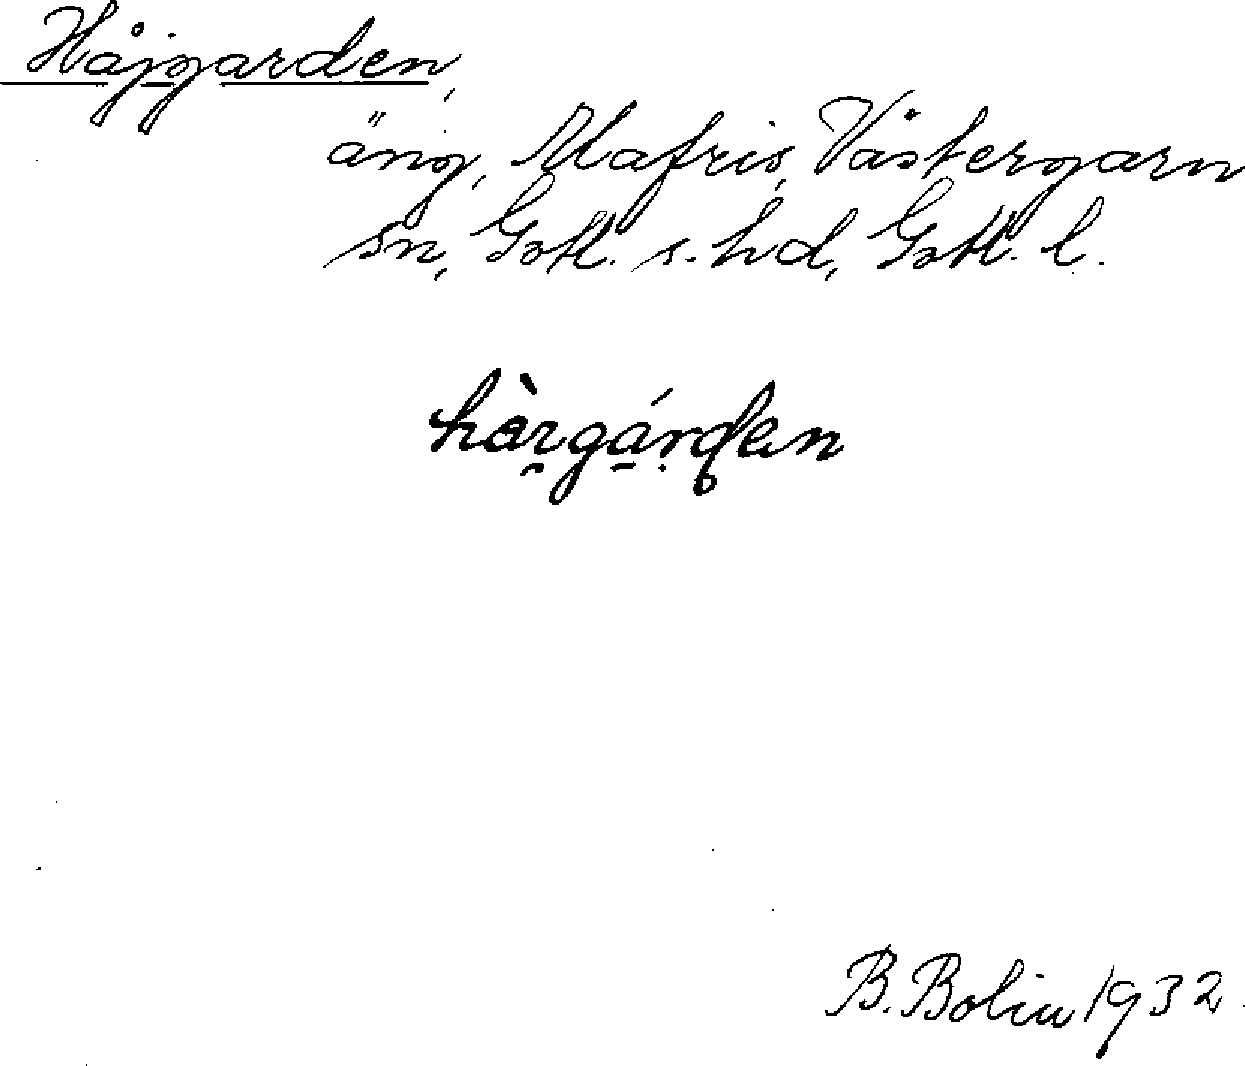 Håjgarden,
äng, Mafris, Västergarn
sn, Gotl. s. hd, Gotl. l.
hàrgárden
B. Bolin 1932